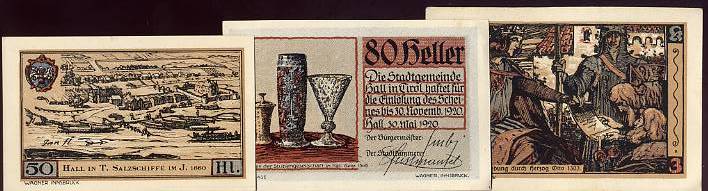 50
HALL IN T. SALZSCHIFFE IM J. 1660
Hl.
WAGNER INNSBRUCK
80 Heller
Die Stadtgemeinde
Hall in Tirol haftet für
die Einlösung des Schei-
nes bis 30. Novemb. 1920
Hall, 30. Mai 1920
Der Bürgermeister:
Der Stadtkämmerer:
WAGNER, INNSBRUCK.
durch Herzog Otto 1303.
3